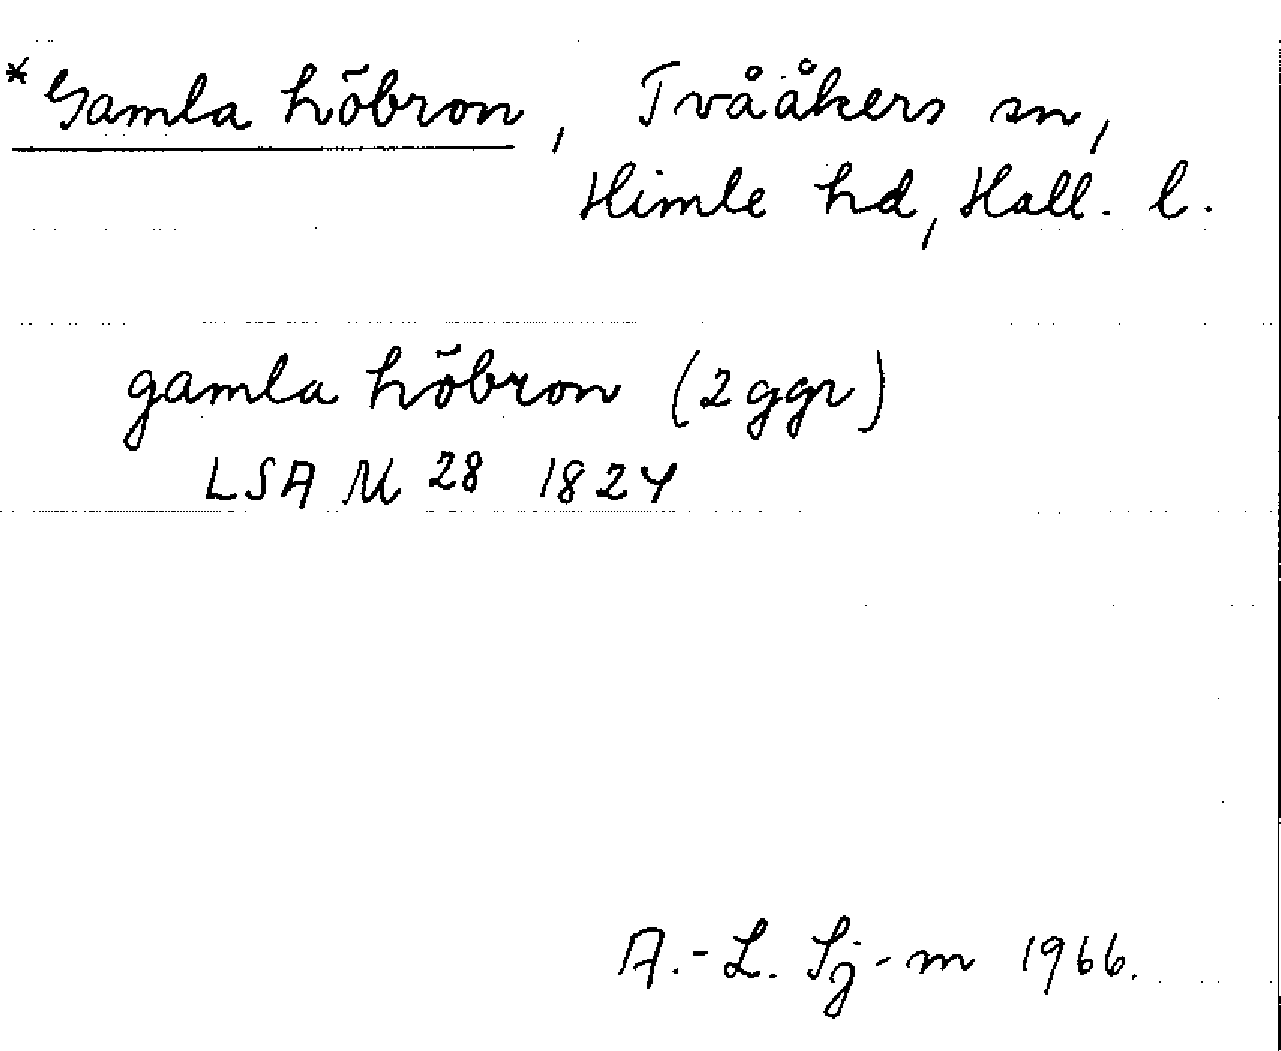 *Gamla höbron, Tvååkers sn,
Himle hd, Hall. l.
gamla höbron (2 ggr)
LSA M 28 1824
A.-L. Sj-m 1966.